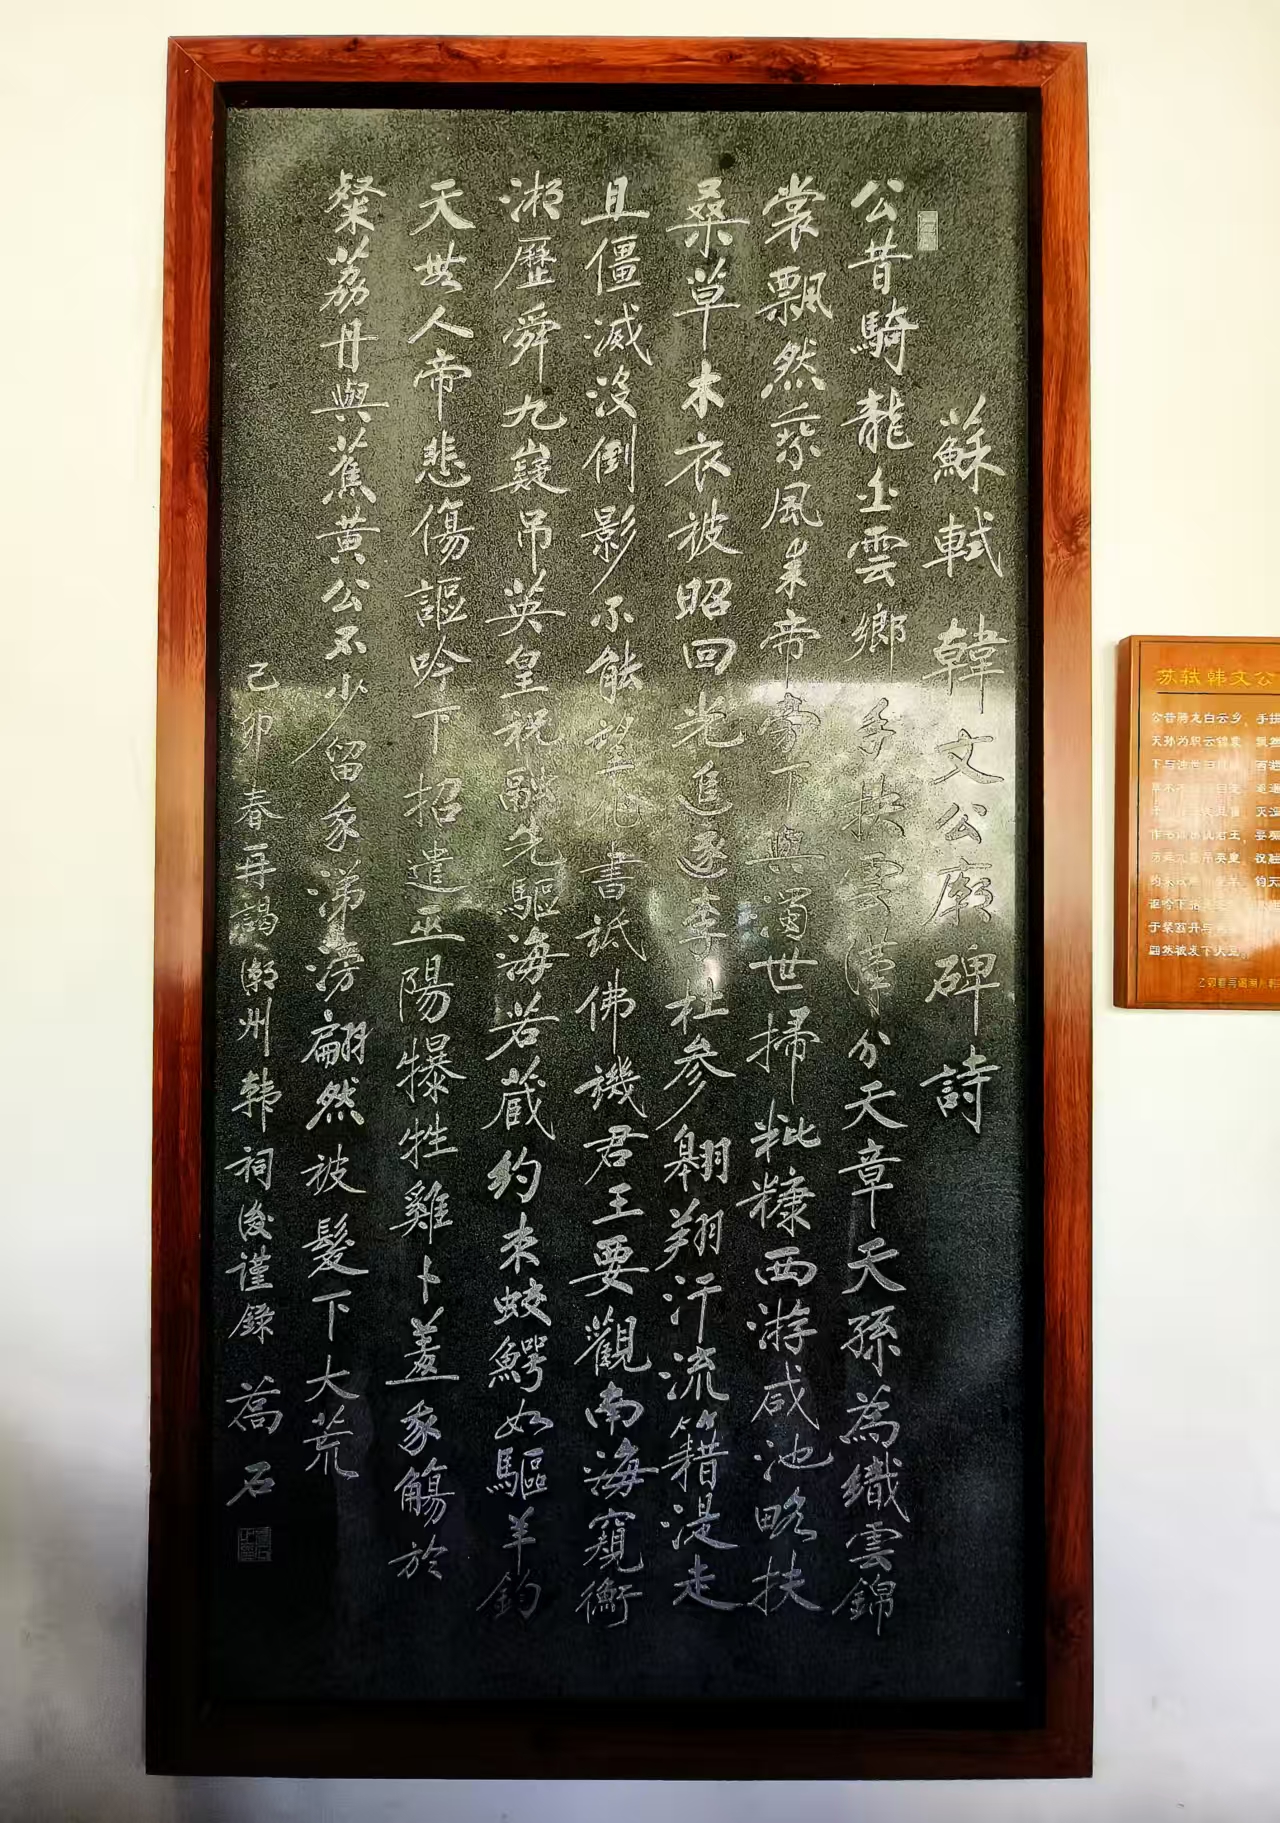 蘇軾韓文公廟碑詩
公昔騎龍白雲鄉手抉雲漢分天章天孫為織雲錦
裳飄然乘風來帝旁下與濁世掃粃糠西游咸池略扶
桑草木衣被昭回光追逐李杜參翱翔汗流籍湜走
且僵滅沒倒影不能望作書詆佛譏君王要觀南海窺衡
湘歷舜九嶷吊英皇祝融先驅海若藏約束蛟鱷如驅羊鈞
天無人帝悲傷謳吟下招遣巫陽犦牲雞卜羞我觴於
粲荔丹與蕉黃公不少留我涕滂翩然被髮下大荒
己卯春再謁潮州韩祠後謹錄 蒿石
苏轼韩文公
公昔骑龙白云乡，手抉
天孙为织云锦裳，飘然
下与浊世
草木
灭没
君王，要观
历舜九嶷吊英皇，祝融
钧天
讴吟下招
于粲荔丹与
翩然被发下大荒。